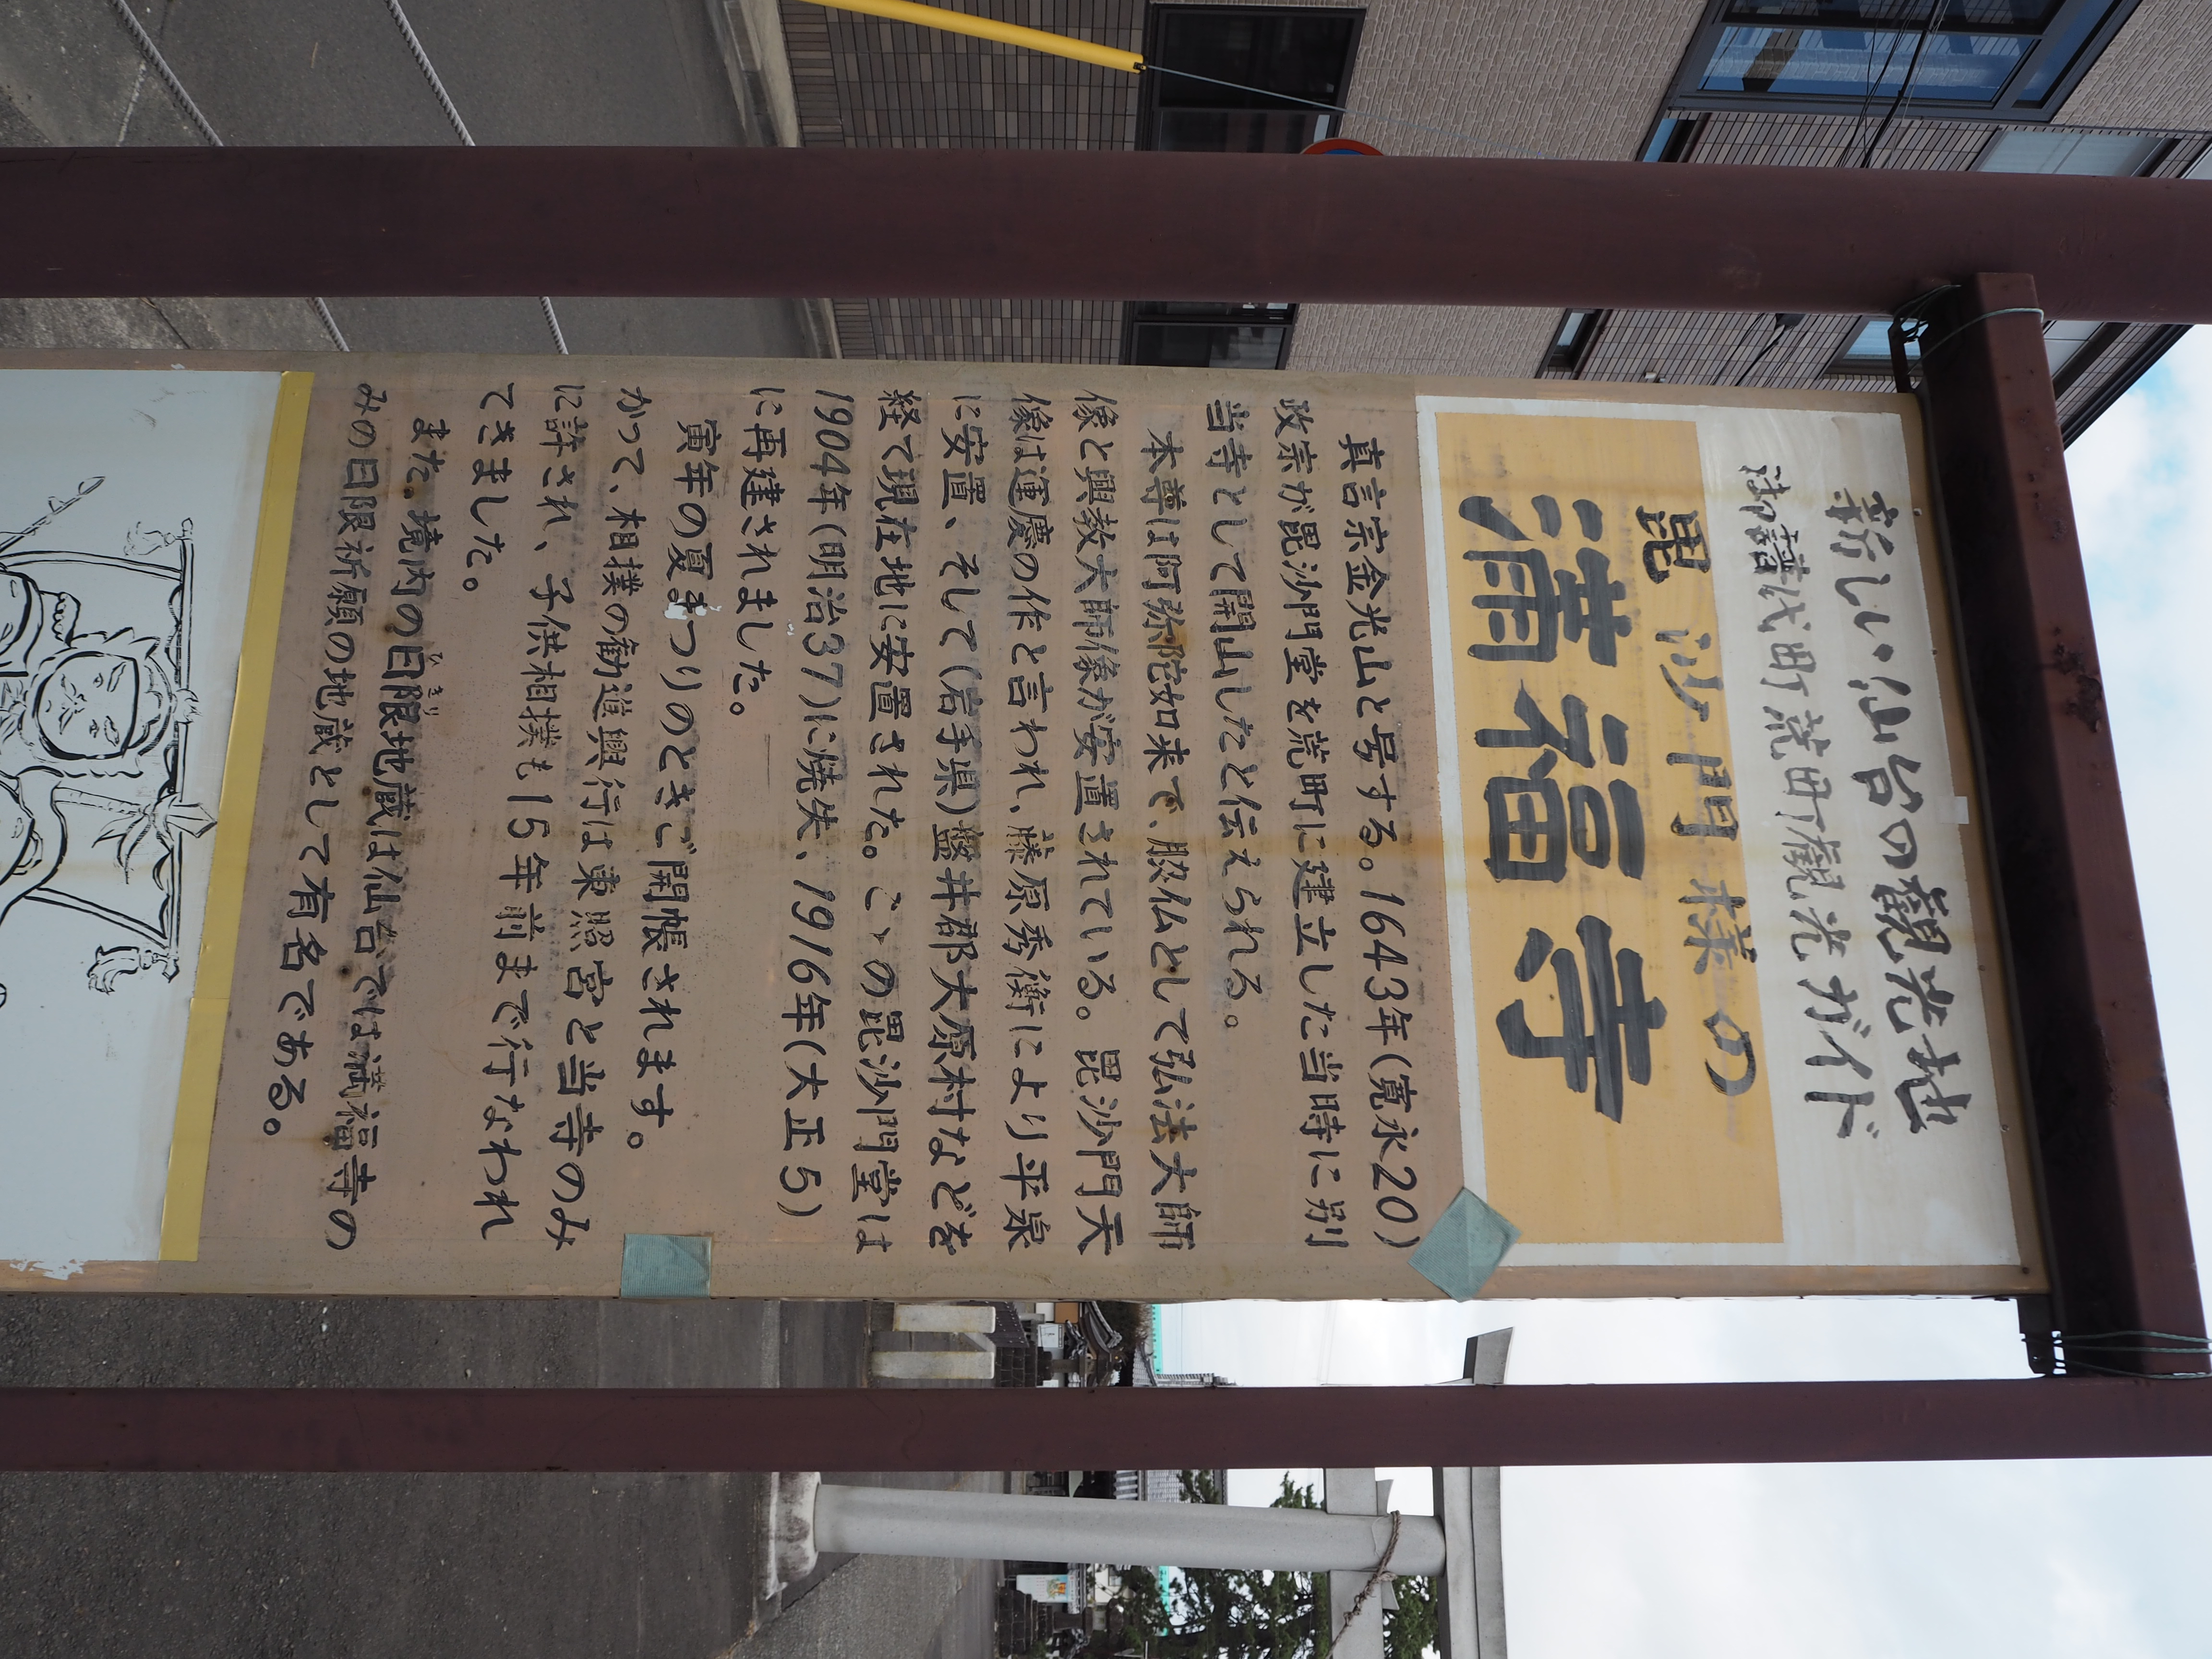 新しい仙台の観光地
御譜代町荒町観光ガイド
毘沙門様の
満福寺
真言宗金光山と号する。1643年(寛永20)
政宗が毘沙門堂を荒町に建立した当時に別
当寺として開山したと伝えられる。
本尊は阿弥陀如来で、脇仏として弘法大師
像と興教大師像が安置されている。毘沙門天
像は運慶の作と言われ、藤原秀衡により平泉
に安置、そして(岩手県)盤井郡大原村などを
経て現在地に安置された。こゝの毘沙門堂は
1904年(明治37)に焼失、1916年(大正5)
に再建されました。
寅年の夏まつりのときご開帳されます。
かつて、相撲の勧進興行は東照宮と当寺のみ
に許され、子供相撲も15年前まで行なわれ
てきました。
また、境内の日限地蔵は仙台では満福寺の
みの日限祈願の地蔵として有名である。